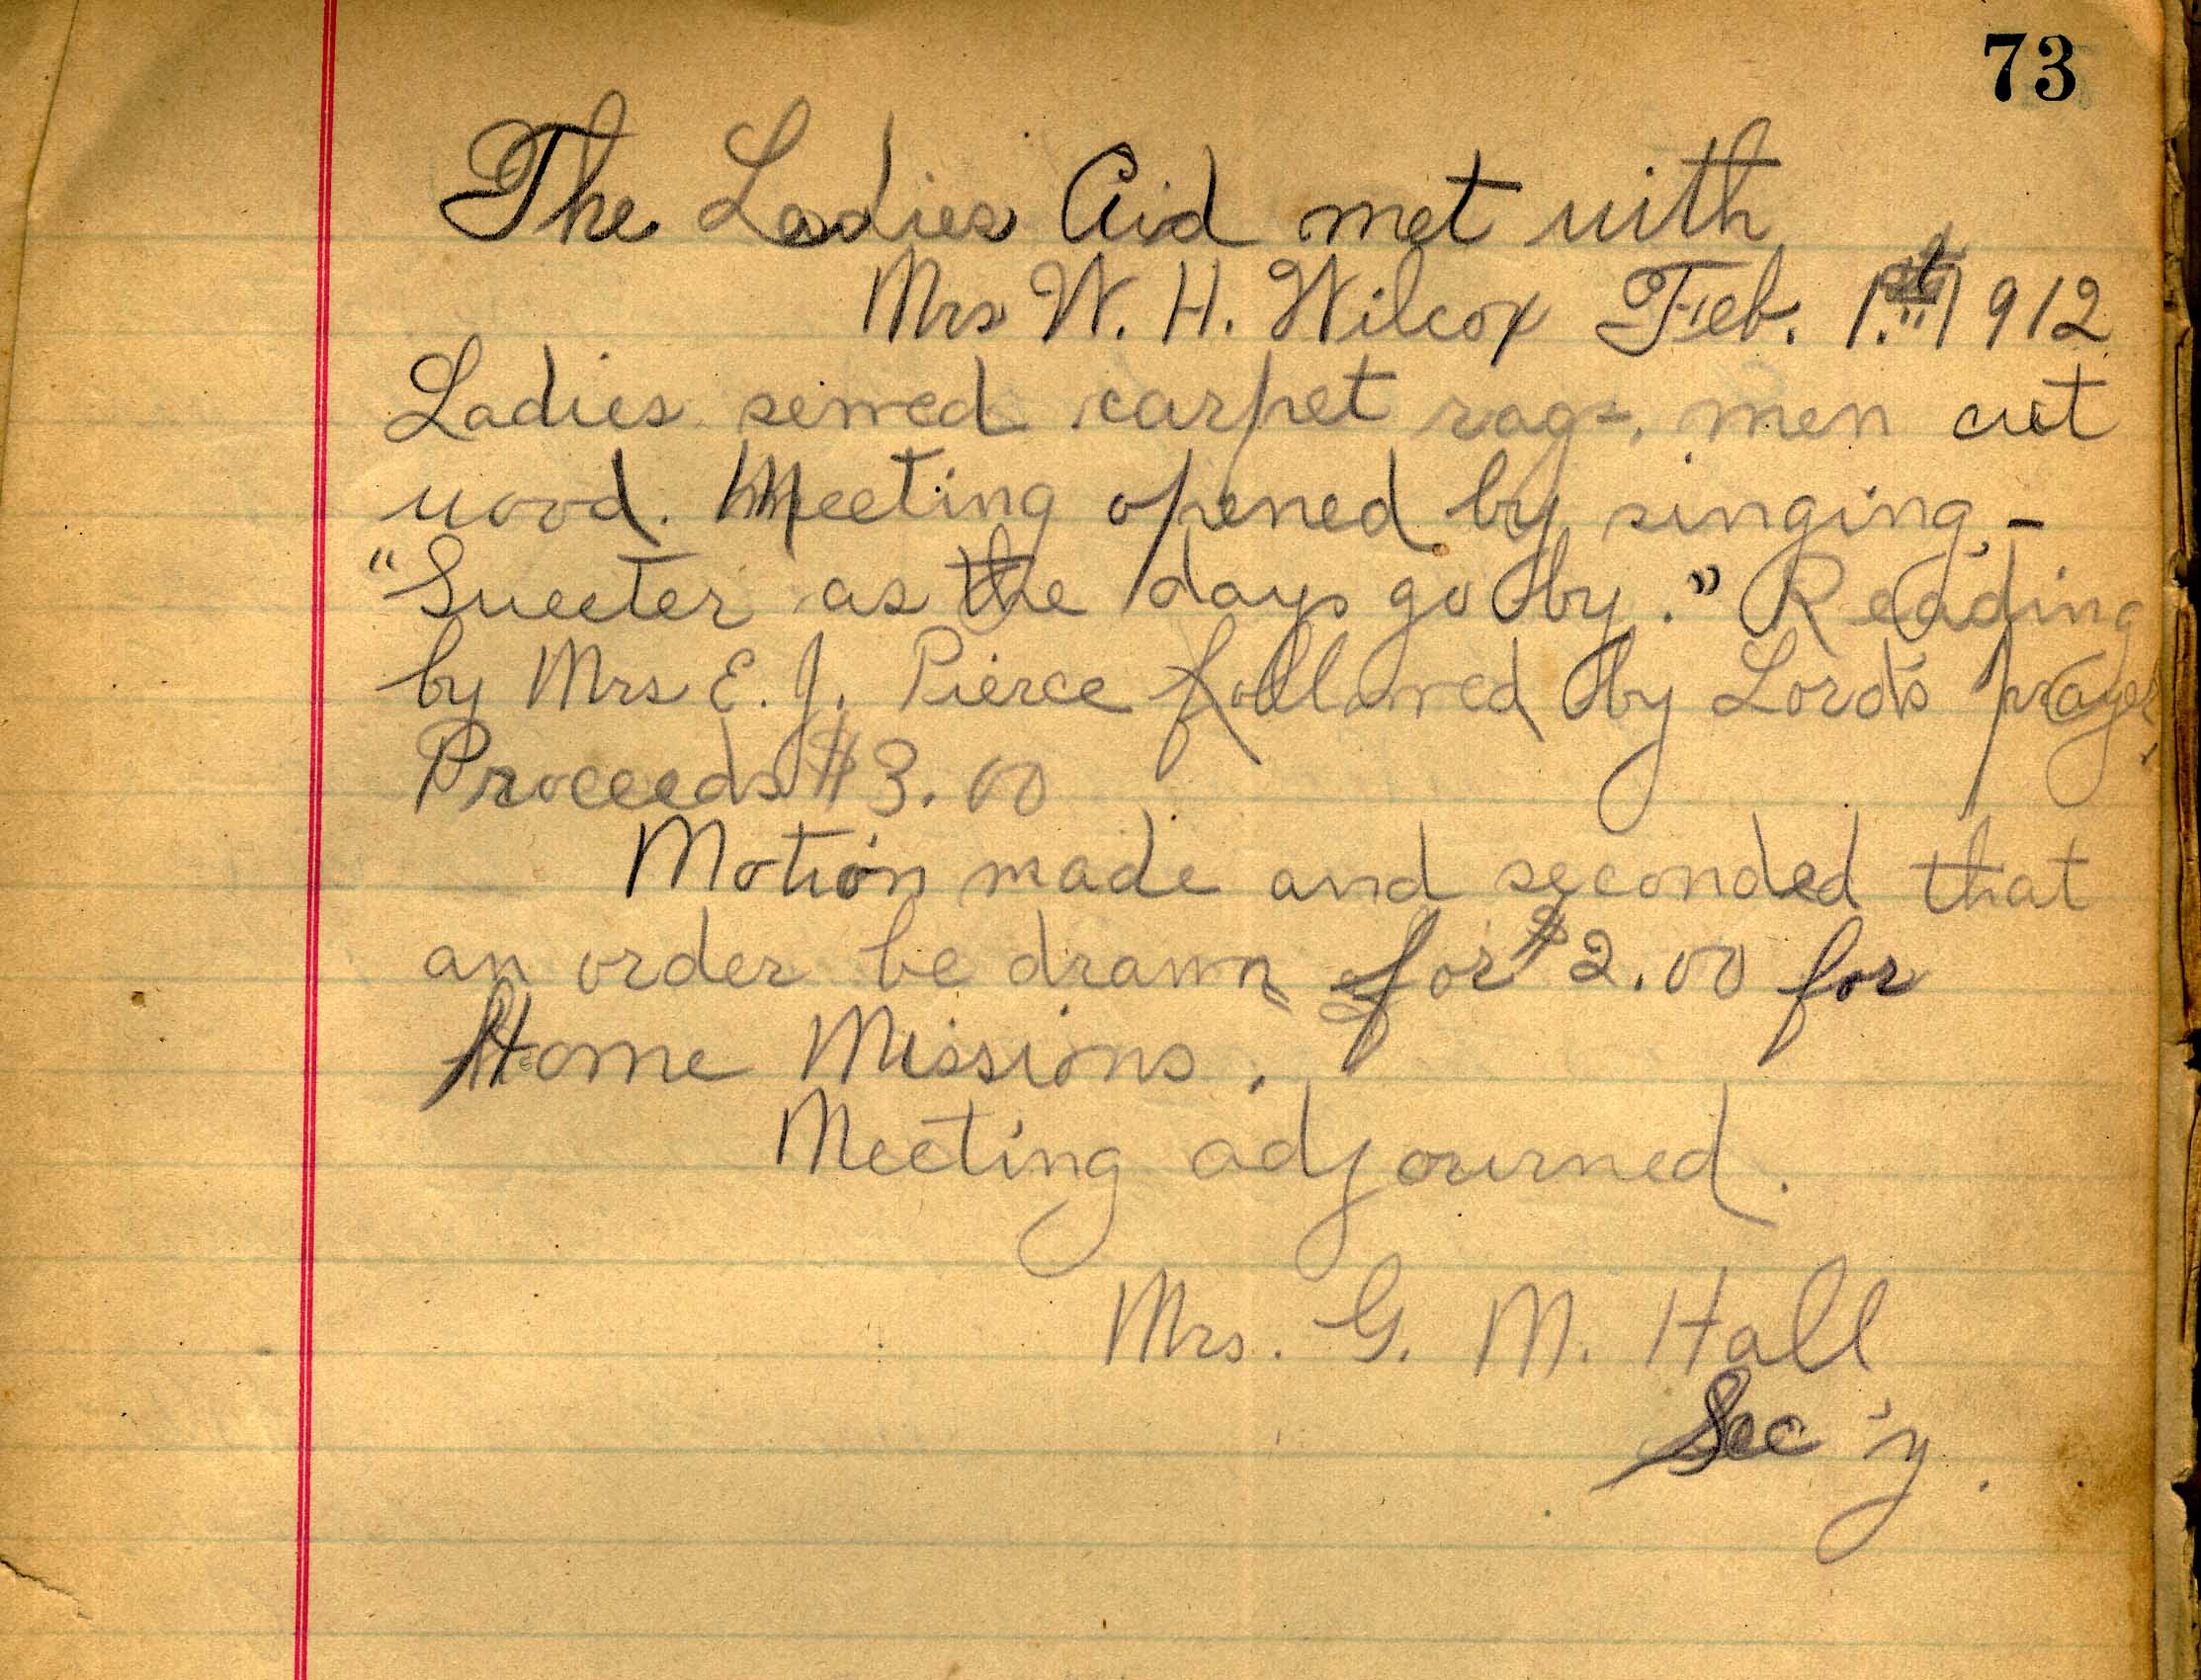 73
The Ladies Aid met with
Mrs W. H. Wilcox Feb. 1.st 1912
Ladies sewed carpet rags, men cut
wood. Meeting opened by singing, -
"Sweeter as the days go by." Reading
by Mrs E. J. Pierce followed by Lord's prayer.
Proceeds $3.00
Motion made and seconded that
an order be drawn for $2.00 for
Home Missions.
Meeting adjourned.
Mrs. G. M. Hall
Sec'y.